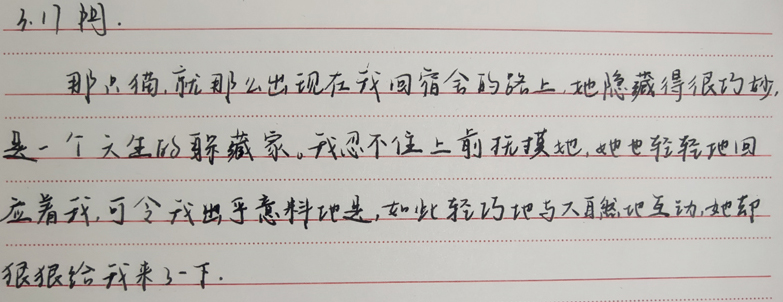 3.17 阴.
那只猫,就那么出现在我回宿舍的路上,她隐藏得很巧妙,
是一个天生的躲藏家。我忍不住上前抚摸她,她也轻轻地回
应着我,可令我出乎意料地是,如此轻巧地与大自然地互动,她却
狠狠给我来了一下.